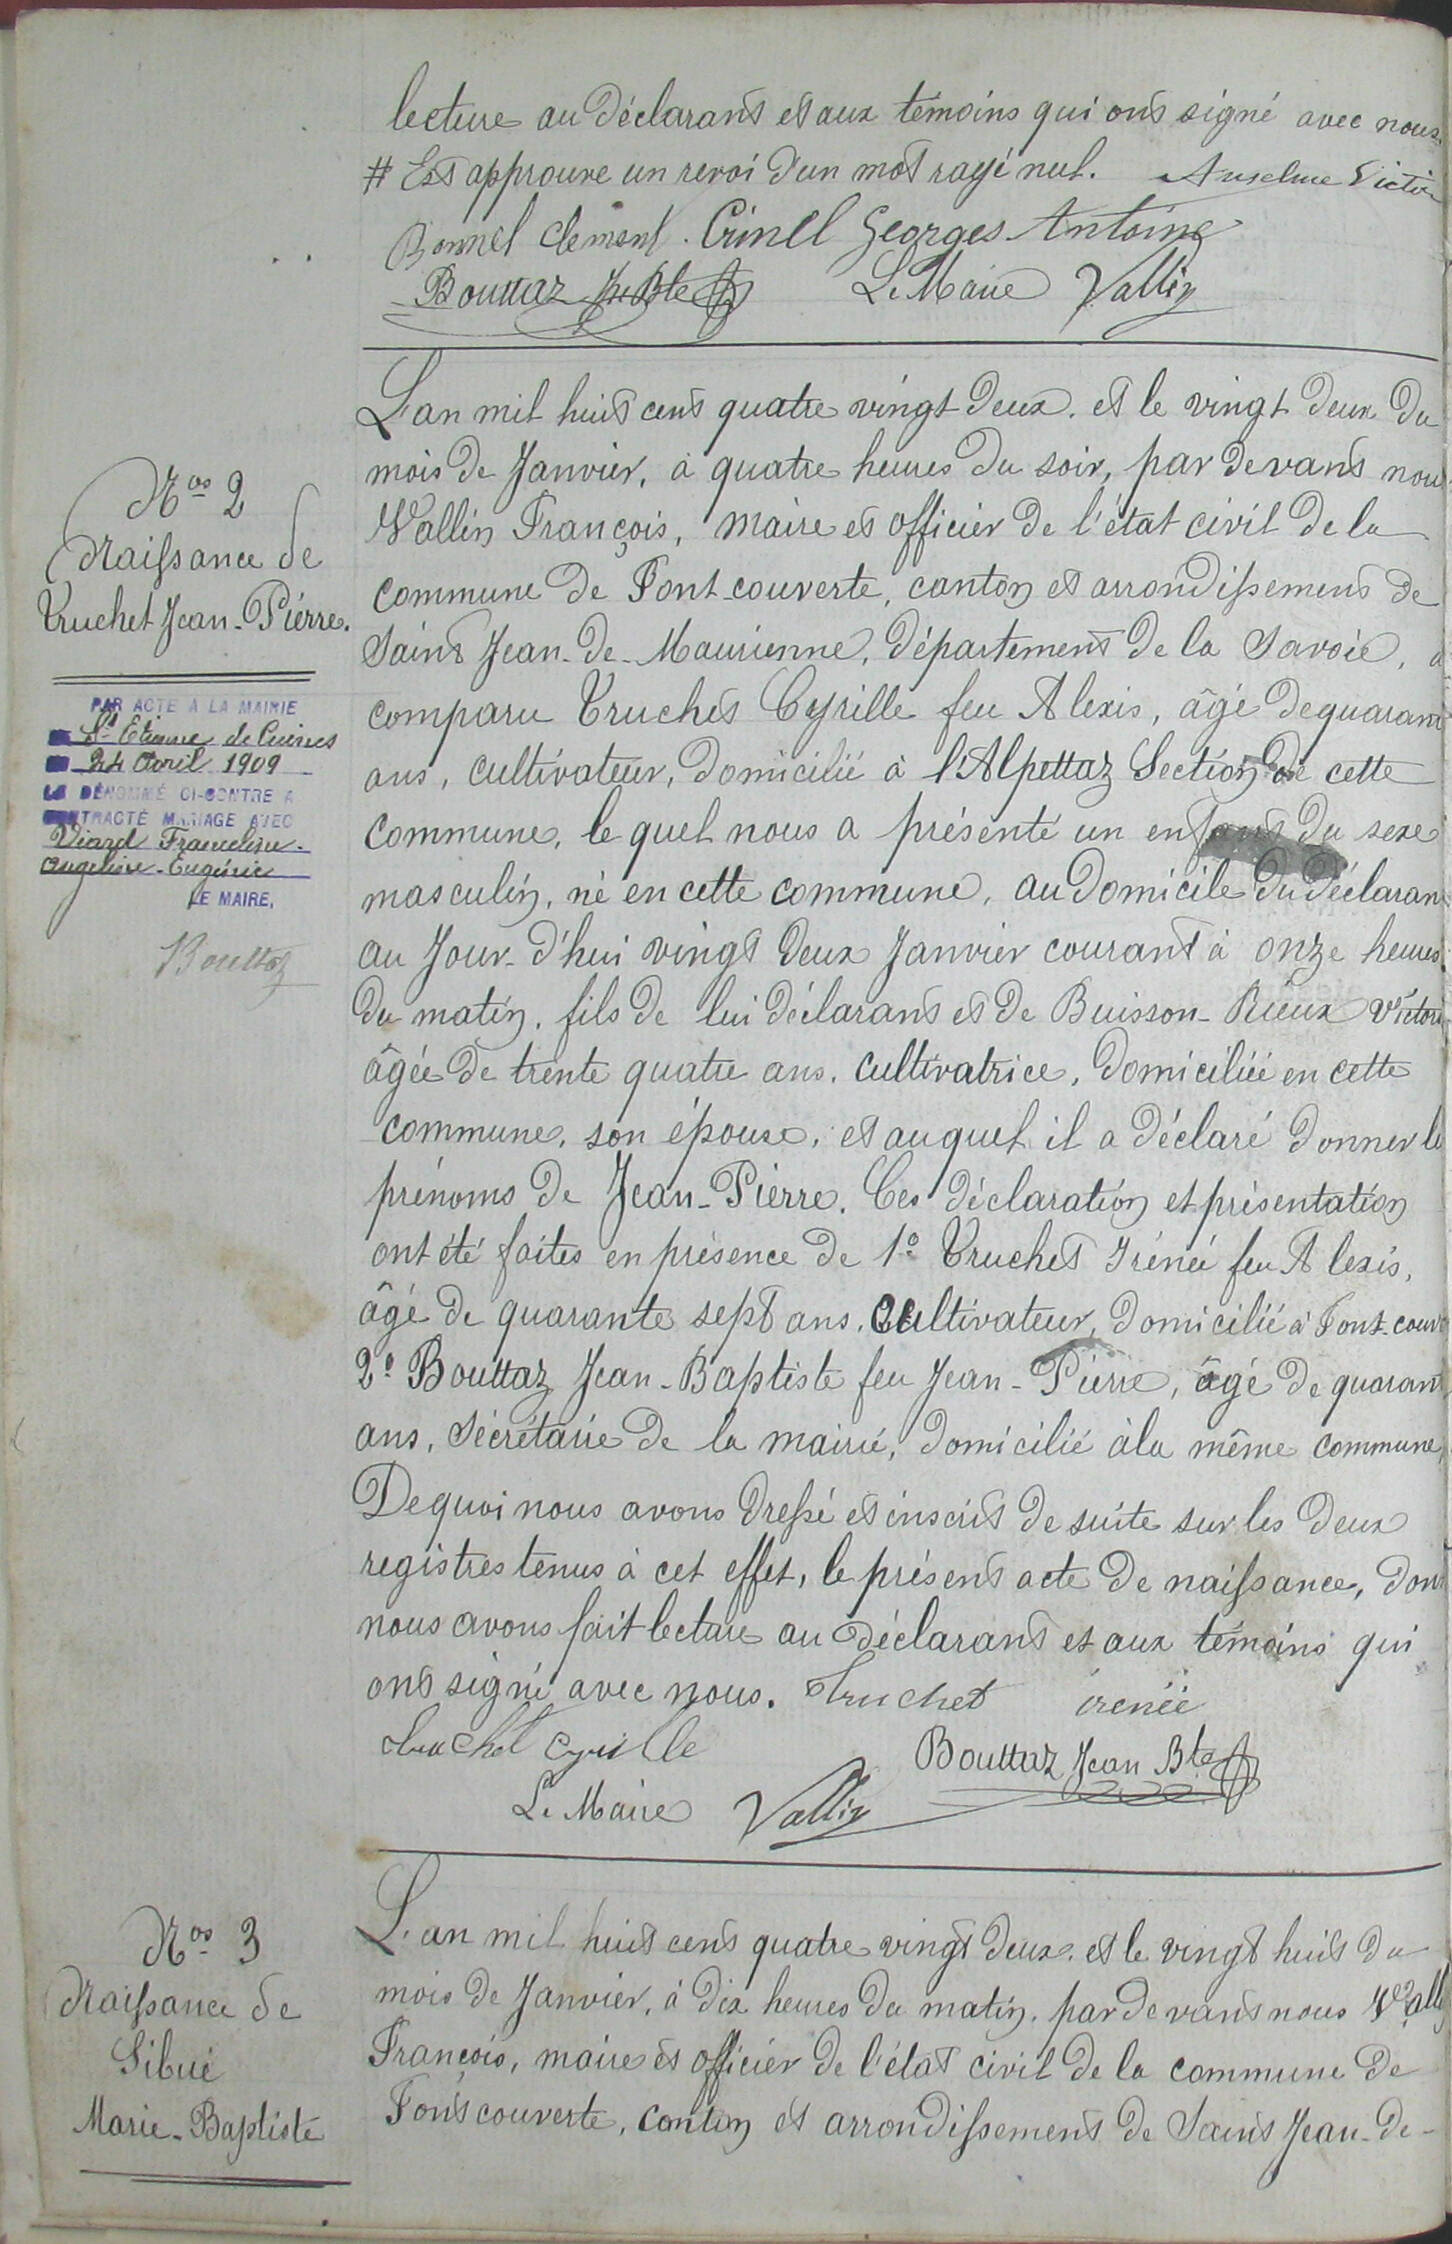 lecture au déclarant et aux témoins qui ont signé avec nous.
# Est approuve un renvoi d'un mot rayé nul. Anselme Victor
Bonnel clement. Crinel Georges Antoine
Bouttaz Jn Bte Le Maire Vallin
Nos 2
Naissance de
Truchet Jean-Pierre.
PAR ACTE A LA MAIRIE
St Etienne de Cuines
24 Avril 1909
LE DÉNOMMÉ CI-CONTRE A
CONTRACTÉ MARIAGE AVEC
Viard Franceline
Angeline-Eugénie
LE MAIRE,
Bouttaz
L'an mil huit cent quatre vingt deux. et le vingt deux du
mois de Janvier, à quatre heures du soir, par devant nou
Vallin François, maire et officier de l'état civil de la
commune de Font-couverte, canton et arrondissement de
Saint Jean-de-Maurienne, département de la Savoie, a
comparu Truchet Cyrille feu Alexis, âgé de quarant
ans, cultivateur, domicilié à l'Alpettaz Section de cette
commune, le quel nous a présenté un enfant du sexe
masculin, né en cette commune, au domicile du déclaran
au Jour-d'hui vingt deux Janvier courant à onze heures
du matin, fils de lui déclarant et de Buisson-Rieux Victori
âgée de trente quatre ans, cultivatrice, domiciliée en cette
commune, son épouse, et auquel il a déclaré donner le
prénoms de Jean-Pierre. Ces déclaration et présentation
ont été faites en présence de 1º Truchet Irénée feu Alexis,
âgé de quarante sept ans, cultivateur, domicilié à Font-couv
2º Bouttaz Jean-Baptiste feu Jean-Pierre, âgé de quarant
ans, Sécrétaire de la mairie, domicilié à la même commune,
De quoi nous avons dressé et inscrit de suite sur les deux
registres tenus à cet effet, le présent acte de naissance, don
nous avons fait lecture au déclarant et aux témoins qui
ont signé avec nous. Truchet irenée
Truchet Cyrille Bouttaz Jean Bte
Le Maire Vallin
Nos 3
Naissance de
Sibué
Marie-Baptiste
L'an mil huit cent quatre vingt deux. et le vingt huit du
mois de Janvier, à dix heures du matin, par devant nous Valli
François, maire et officier de l'état civil de la commune de
Font couverte, canton et arrondissement de Saint Jean-de-